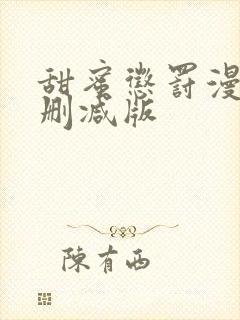 甜蜜懲罰漫
删减版
陳有西